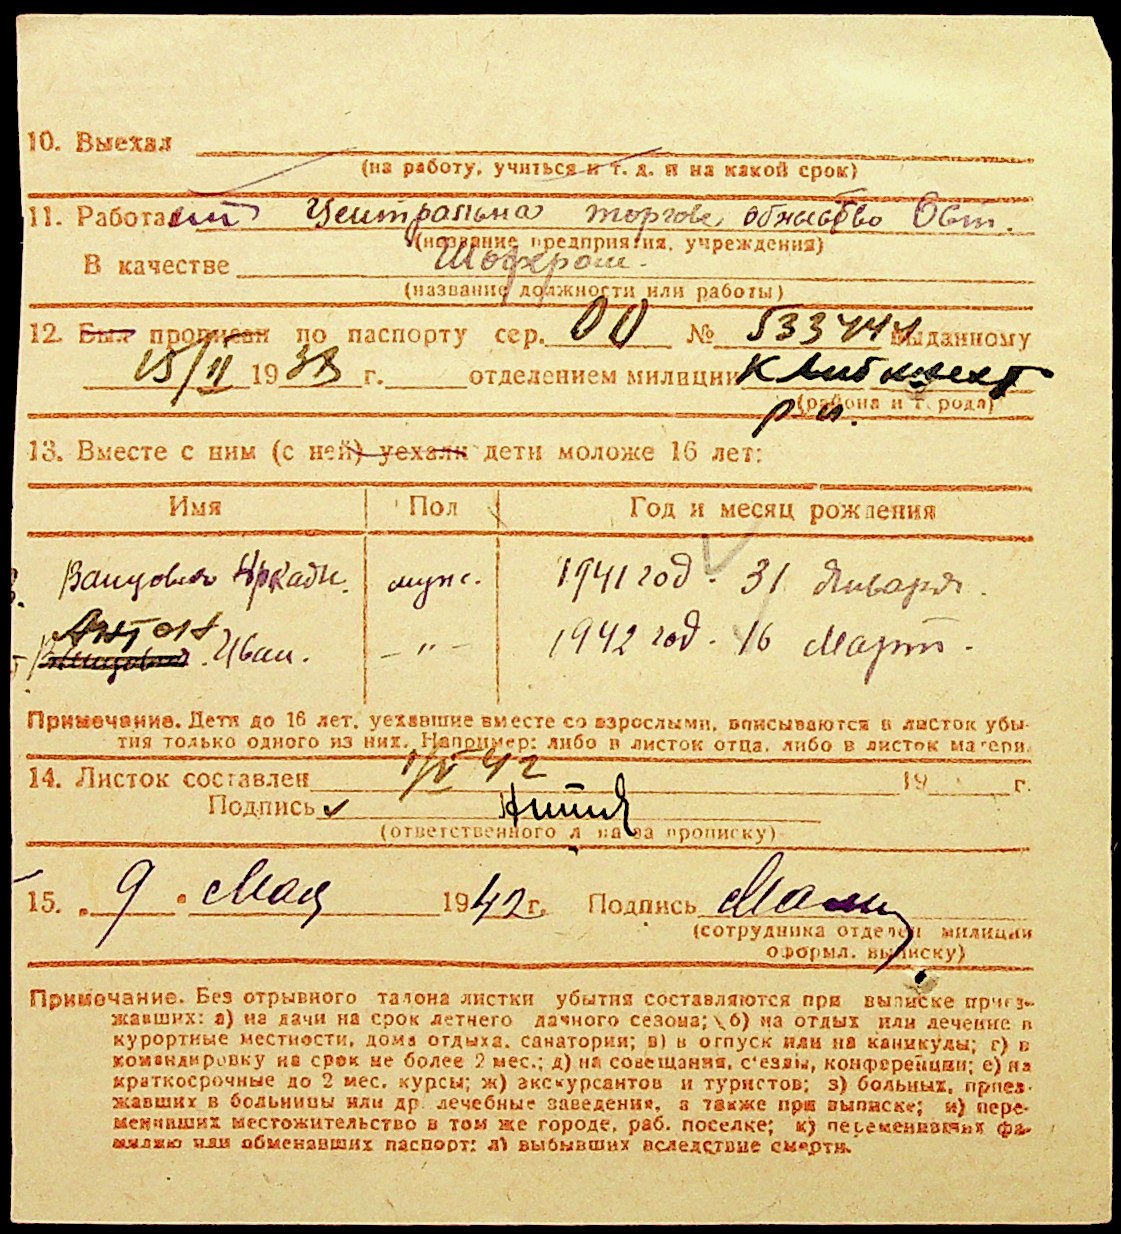 10. Выехал
(на работу, учиться и т. д. и на какой срок)
11. Работает Центральна торгове
(название предприятия, учреждения)
В качестве Шофером.
(название должности или работы)
12. Был прописан по паспорту сер. 00 № выданному
15/II 1938 г. отделением милиции
(района и города)
р-н.
13. Вместе с ним (с ней) уехали дети моложе 16 лет:
Имя Пол Год и месяц рождения
Аркади. муж. 1941 год. 31 Января.
Антон
Иван. — " — 1942 год. 16 Март.
Примечание. Дети до 16 лет, уехавшие вместе со взрослыми, вписываются в листок убы-
тия только одного из них. Например: либо в листок отца, либо в листок матери.
14. Листок составлен 42 19 г.
Подпись
(ответственного лица за прописку)
15. „ 9 " Мая 1942 г. Подпись
(сотрудника отделен милиции
оформл. выписку)
Примечание. Без отрывного талона листки убытия составляются при выписке приез-
жавших: а) на дачи на срок летнего дачного сезона; б) на отдых или лечение в
курортные местности, дома отдыха, санатории; в) в отпуск или на каникулы; г) в
командировку на срок не более 2 мес.; д) на совещания, с'езды, конференции; е) на
краткосрочные до 2 мес. курсы; ж) экскурсантов и туристов; з) больных, приез-
жавших в больницы или др. лечебные заведения, а также при выписке; и) пере-
менивших местожительство в том же городе, раб. поселке; к) переменивших фа-
милию или обменавших паспорт; л) выбывших вследствие смерти.